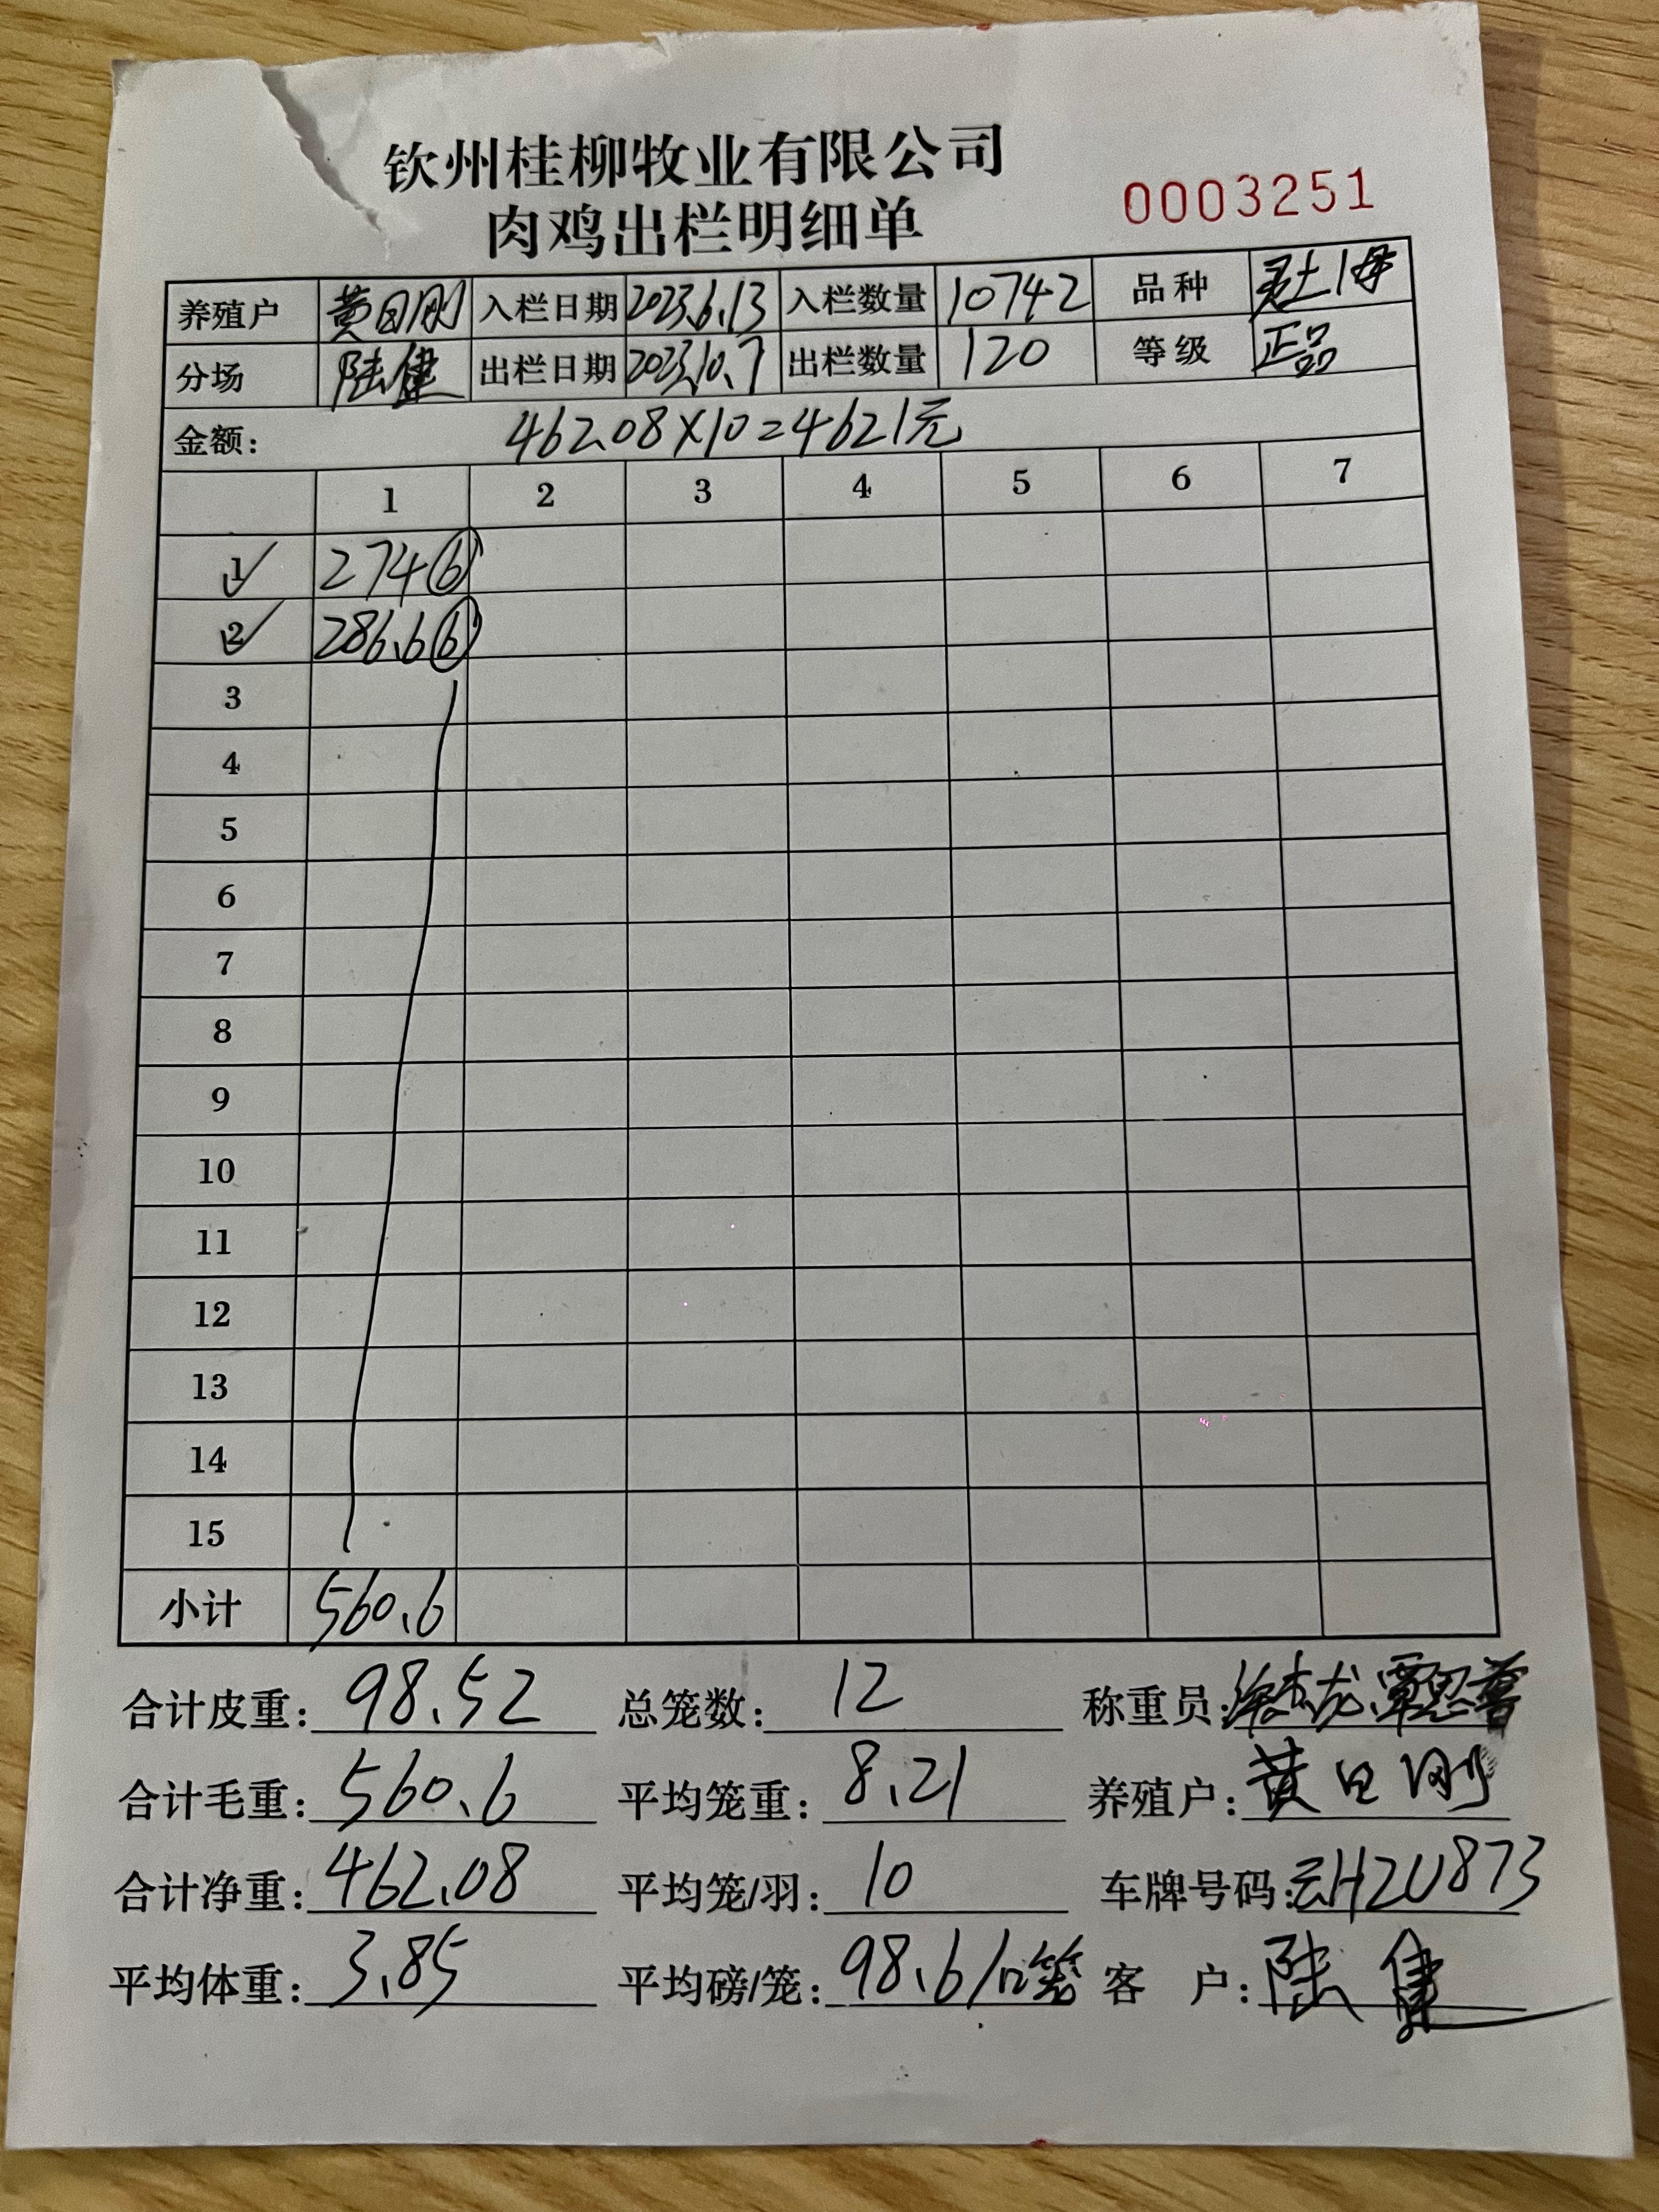 钦州桂柳牧业有限公司
肉鸡出栏明细单
0003251
养殖户 黄日刚 入栏日期 2023.6.13 入栏数量 10742 品种 土1母
分场 陆健 出栏日期 2023.10.7 出栏数量 120 等级 正品
金额: 462.08×10=4621元
1 2 3 4 5 6 7
1✓ 274⑥
2✓ 286.6⑥
3
4
5
6
7
8
9
10
11
12
13
14
15
小计 560.6
合计皮重: 98.52 总笼数: 12 称重员: 杰龙 覃思
合计毛重: 560.6 平均笼重: 8.21 养殖户: 黄日刚
合计净重: 462.08 平均笼/羽: 10 车牌号码: 云H2U873
平均体重: 3.85 平均磅/笼: 98.6/ 客户: 陆健